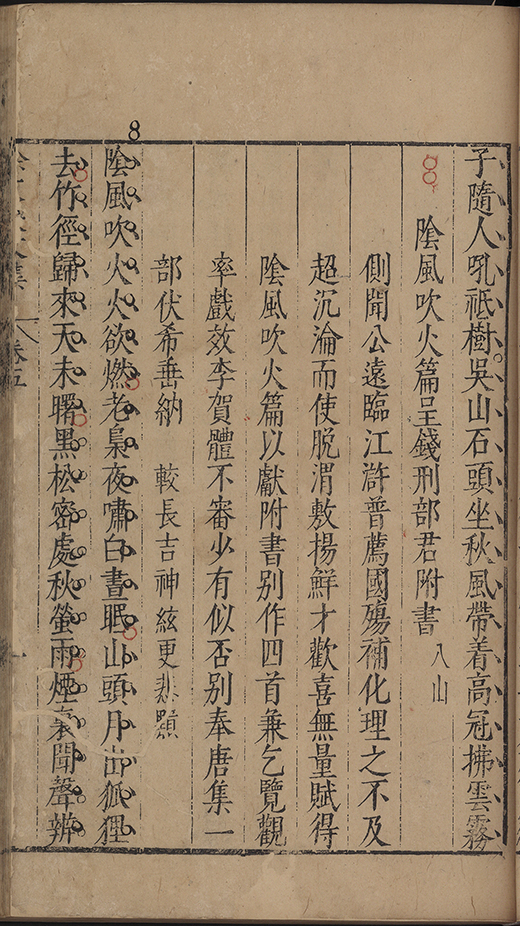 子隨人吼祇樹吳山石頭坐秋風帶着高冠拂雲霧
陰風吹火篇呈錢刑部君附書 八山
側聞公遠臨江滸普薦國殤補化理之不及
超沉淪而使脫渭敷揚鮮才歡喜無量賦得
陰風吹火篇以獻附書別作四首兼乞覽觀
率戲效李賀體不審少有似否別奉唐集一
部伏希垂納 較長吉神絃更悲顯
陰風吹火火欲燃老梟夜嘯白晝眠山頭月出狐狸
去竹徑歸來天未曙黑松密處秋螢雨煙裏聞聲辨
卷五
8